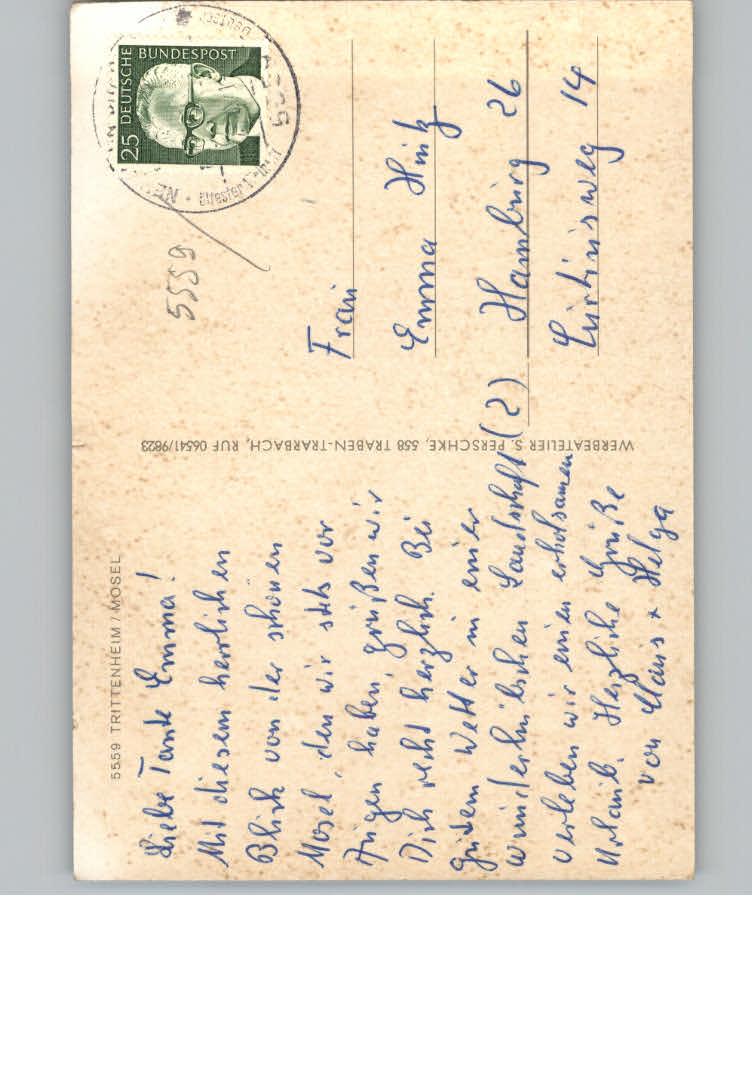 5559 TRITTENHEIM / MOSEL
Liebe Tante Emma!
Mit diesem herrlichen
Blick von der schönen
Mosel, den wir stets vor
Augen haben, grüßen wir
Dich recht herzlich. Bei
gutem Wetter in einer
wunderhübschen Landschaft
verleben wir einen erholsamen
Urlaub. Herzliche Grüße
von Klaus + Helga
WERBEATELIER S. PERSCHKE, 558 TRABEN-TRARBACH, RUF 06541/9823
25 DEUTSCHE BUNDESPOST
5559
Frau
Emma Hintz
(2) Hamburg 26
Curtiusweg 14